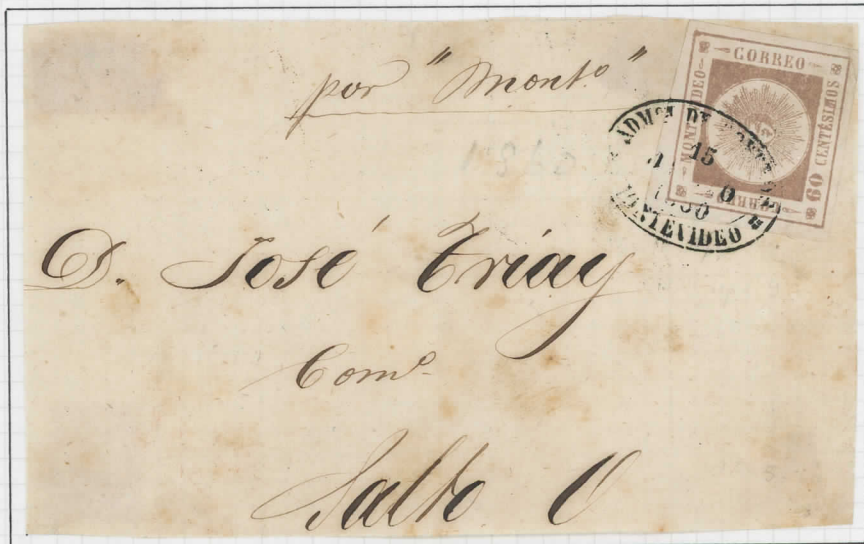 por "Monto"
CORREO
MONTEVIDEO
60 CENTÉSIMOS
CORREO
ADMON DE
15
MONTEVIDEO
D. José Triay
Como
Salto O